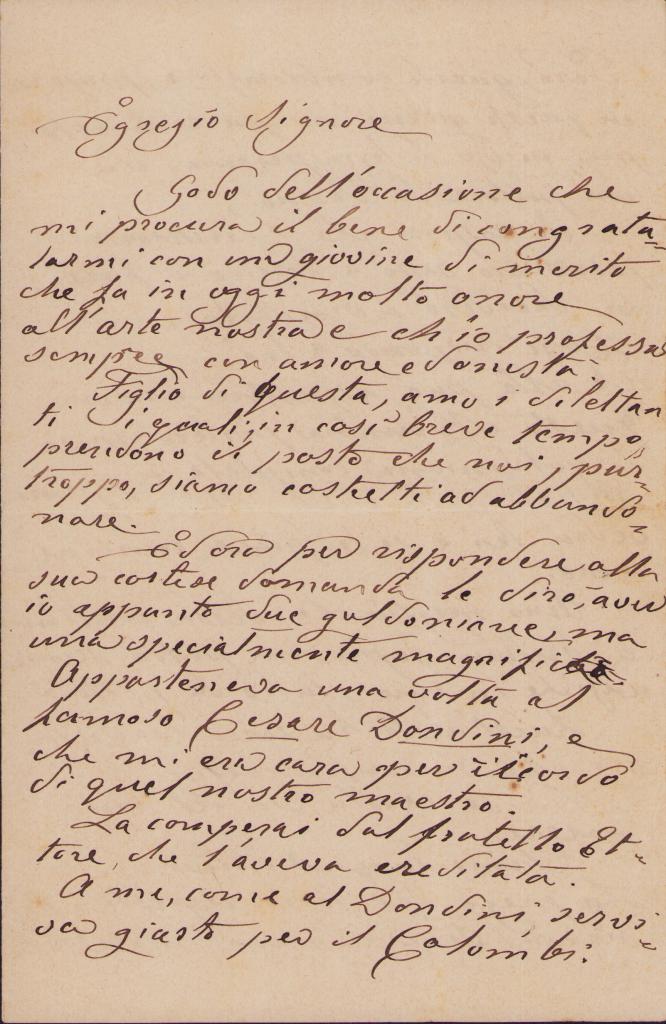 Egregio Signore
Godo dell'occasione che
mi procura il bene di congratu=
larmi con un giovine di merito
che fa in oggi molto onore
all'arte nostra e ch'io professai
sempre con amore ed onestà.
Figlio di questa, amo i dilettan
ti i quali, in così breve tempo,
prendono il posto che noi, pur=
troppo, siamo costretti ad abbando=
nare.
Ed ora per rispondere alla
sua cortese domanda le dirò, avevo
io appunto due goldoniane, ma
una specialmente magnifica.
Apparteneva una volta al
famoso Cesare Dondini, e
che mi era cara per ricordo
di quel nostro maestro.
La comperai dal fratello Et=
tore, che l'aveva ereditata.
A me, come al Dondini, servi=
va giusto per il Colombi.